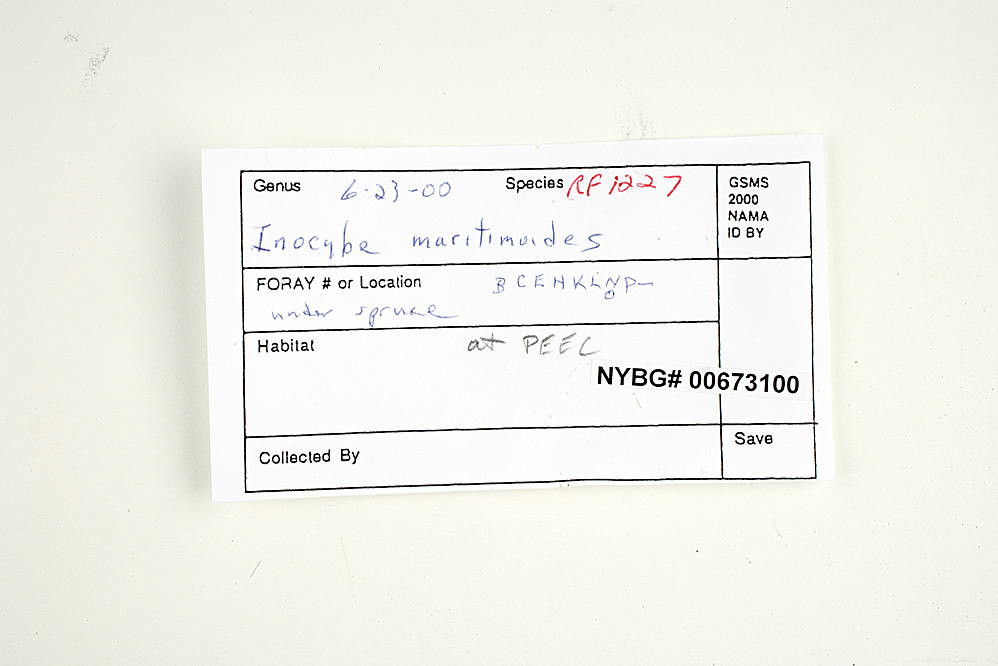 Genus 6-23-00 Species RF 1227
Inocybe maritimoides
GSMS
2000
NAMA
ID BY
FORAY # or Location
under spruce
Habitat at PEEC
NYBG# 00673100
Collected By
Save